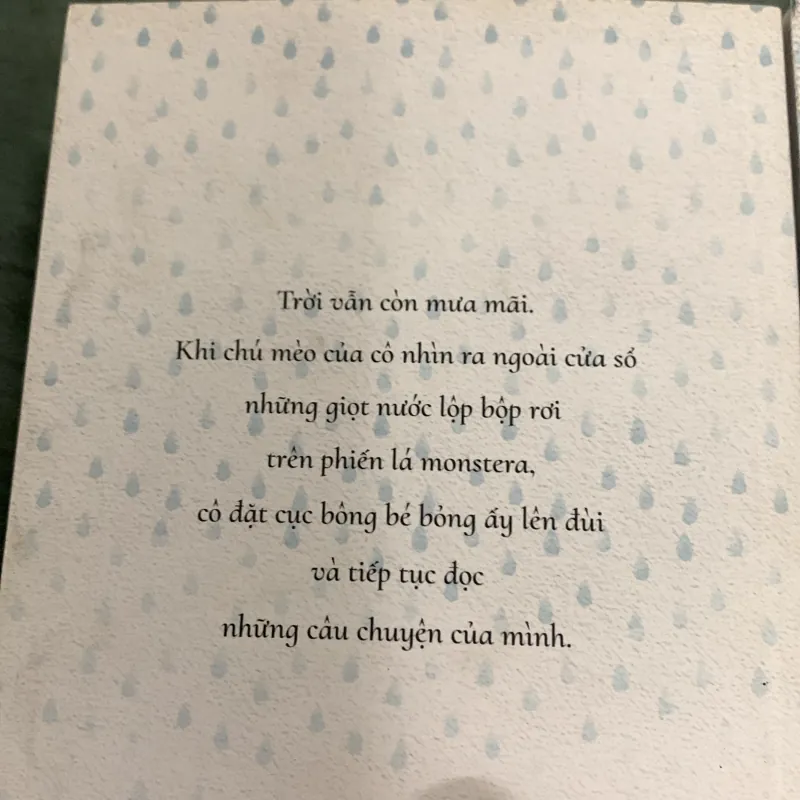 Trời vẫn còn mưa mãi.
Khi chú mèo của cô nhìn ra ngoài cửa sổ
những giọt nước lộp bộp rơi
trên phiến lá monstera,
cô đặt cục bông bé bỏng ấy lên đùi
và tiếp tục đọc
những câu chuyện của mình.